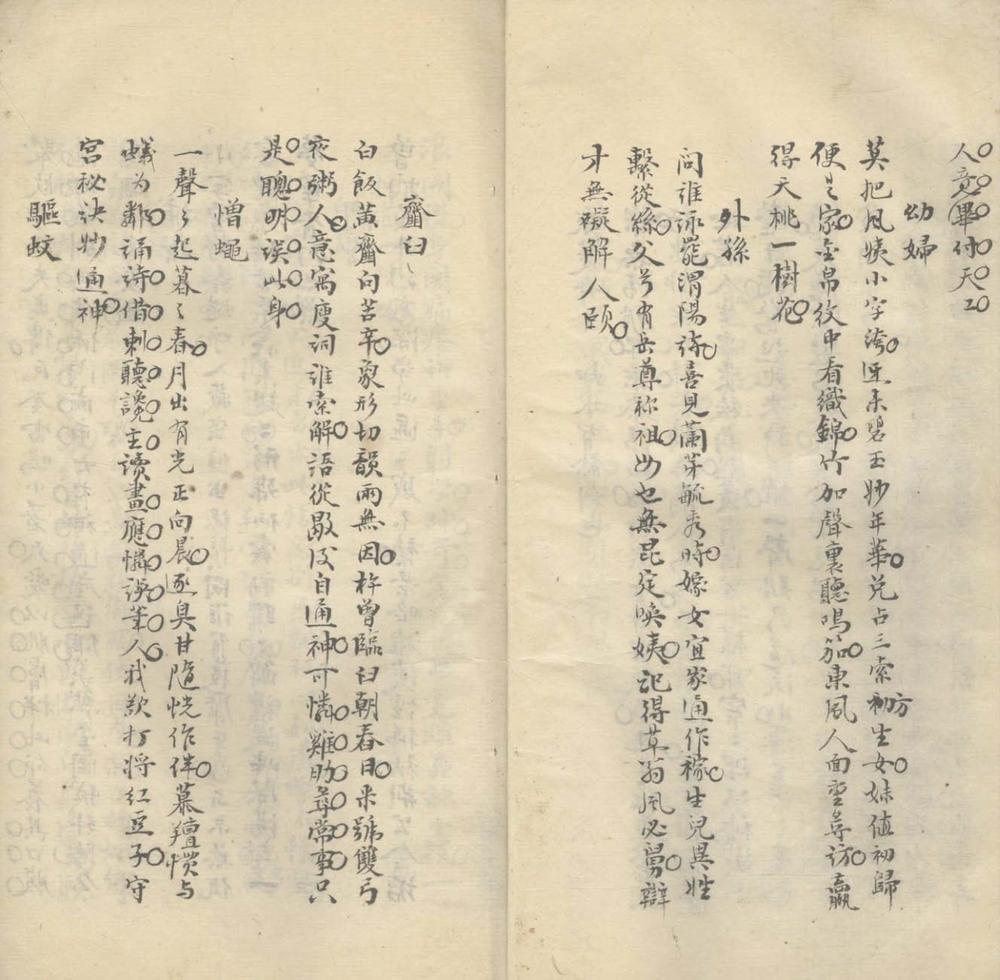 人竟畢付天工
幼婦
莫把風姨小字誇迎來碧玉妙年華兌占三索初方生女妹值初歸
便是家金帛紋中看織錦竹加聲裏聽鳴笳東風人面重尋訪贏
得夭桃一樹花
外孫
問誰詠罷渭陽詩喜見蘭芽毓秀時嫁女宜家通作稼生兒異姓
繫從絲父兮有岳尊祢祖母也無昆定喚姨記得草翁風必舅辯
才無礙解人頤
齏臼
白飯黃齏向苦辛象形切韻兩無因杵曾臨臼朝舂日米號雙弓
夜粥人意寓廋詞誰索解語從敲後自通神可憐雞肋尋常事只
是聰明誤此身
憎蠅
一聲聲起暮暮春月出有光正向晨逐臭甘隨恍作伴慕羶慣与
蟻为鄰誦詩借刺聽讒主讀畫應憐誤筆人我欲打將紅豆子守
宮秘訣妙通神
驅蚊